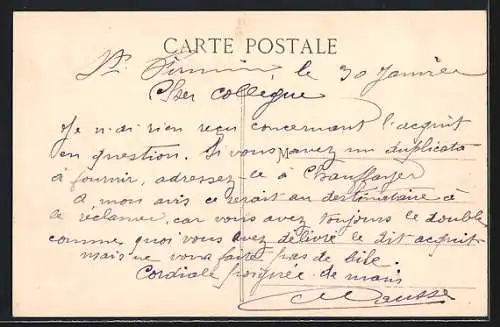 CARTE POSTALE
St Firmin, le 30 Janvier
Cher collègue
Je n'ai rien reçu concernant l'acquit
en question. Si vous avez un duplicata
M
à fournir, adressez-le à Chauffayer
à mon avis ce serait au destinataire à
le réclamer, car vous avez toujours le double
comme quoi vous avez délivré le dit acquit.
mais ne vous faites pas de bile.
Cordiale poignée de mains